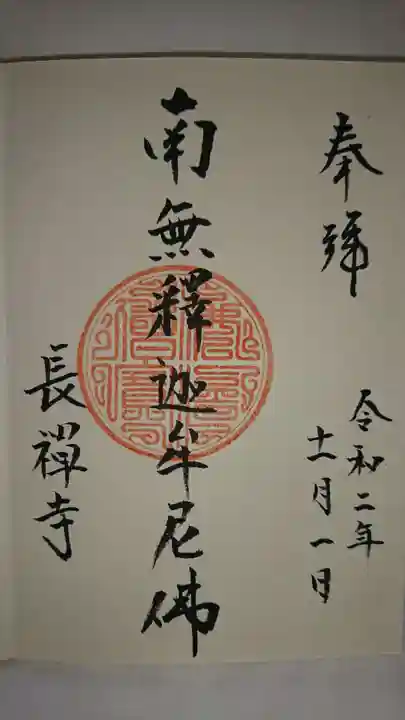 奉拜
令和二年
十一月一日
南無釋迦牟尼佛
長禅寺